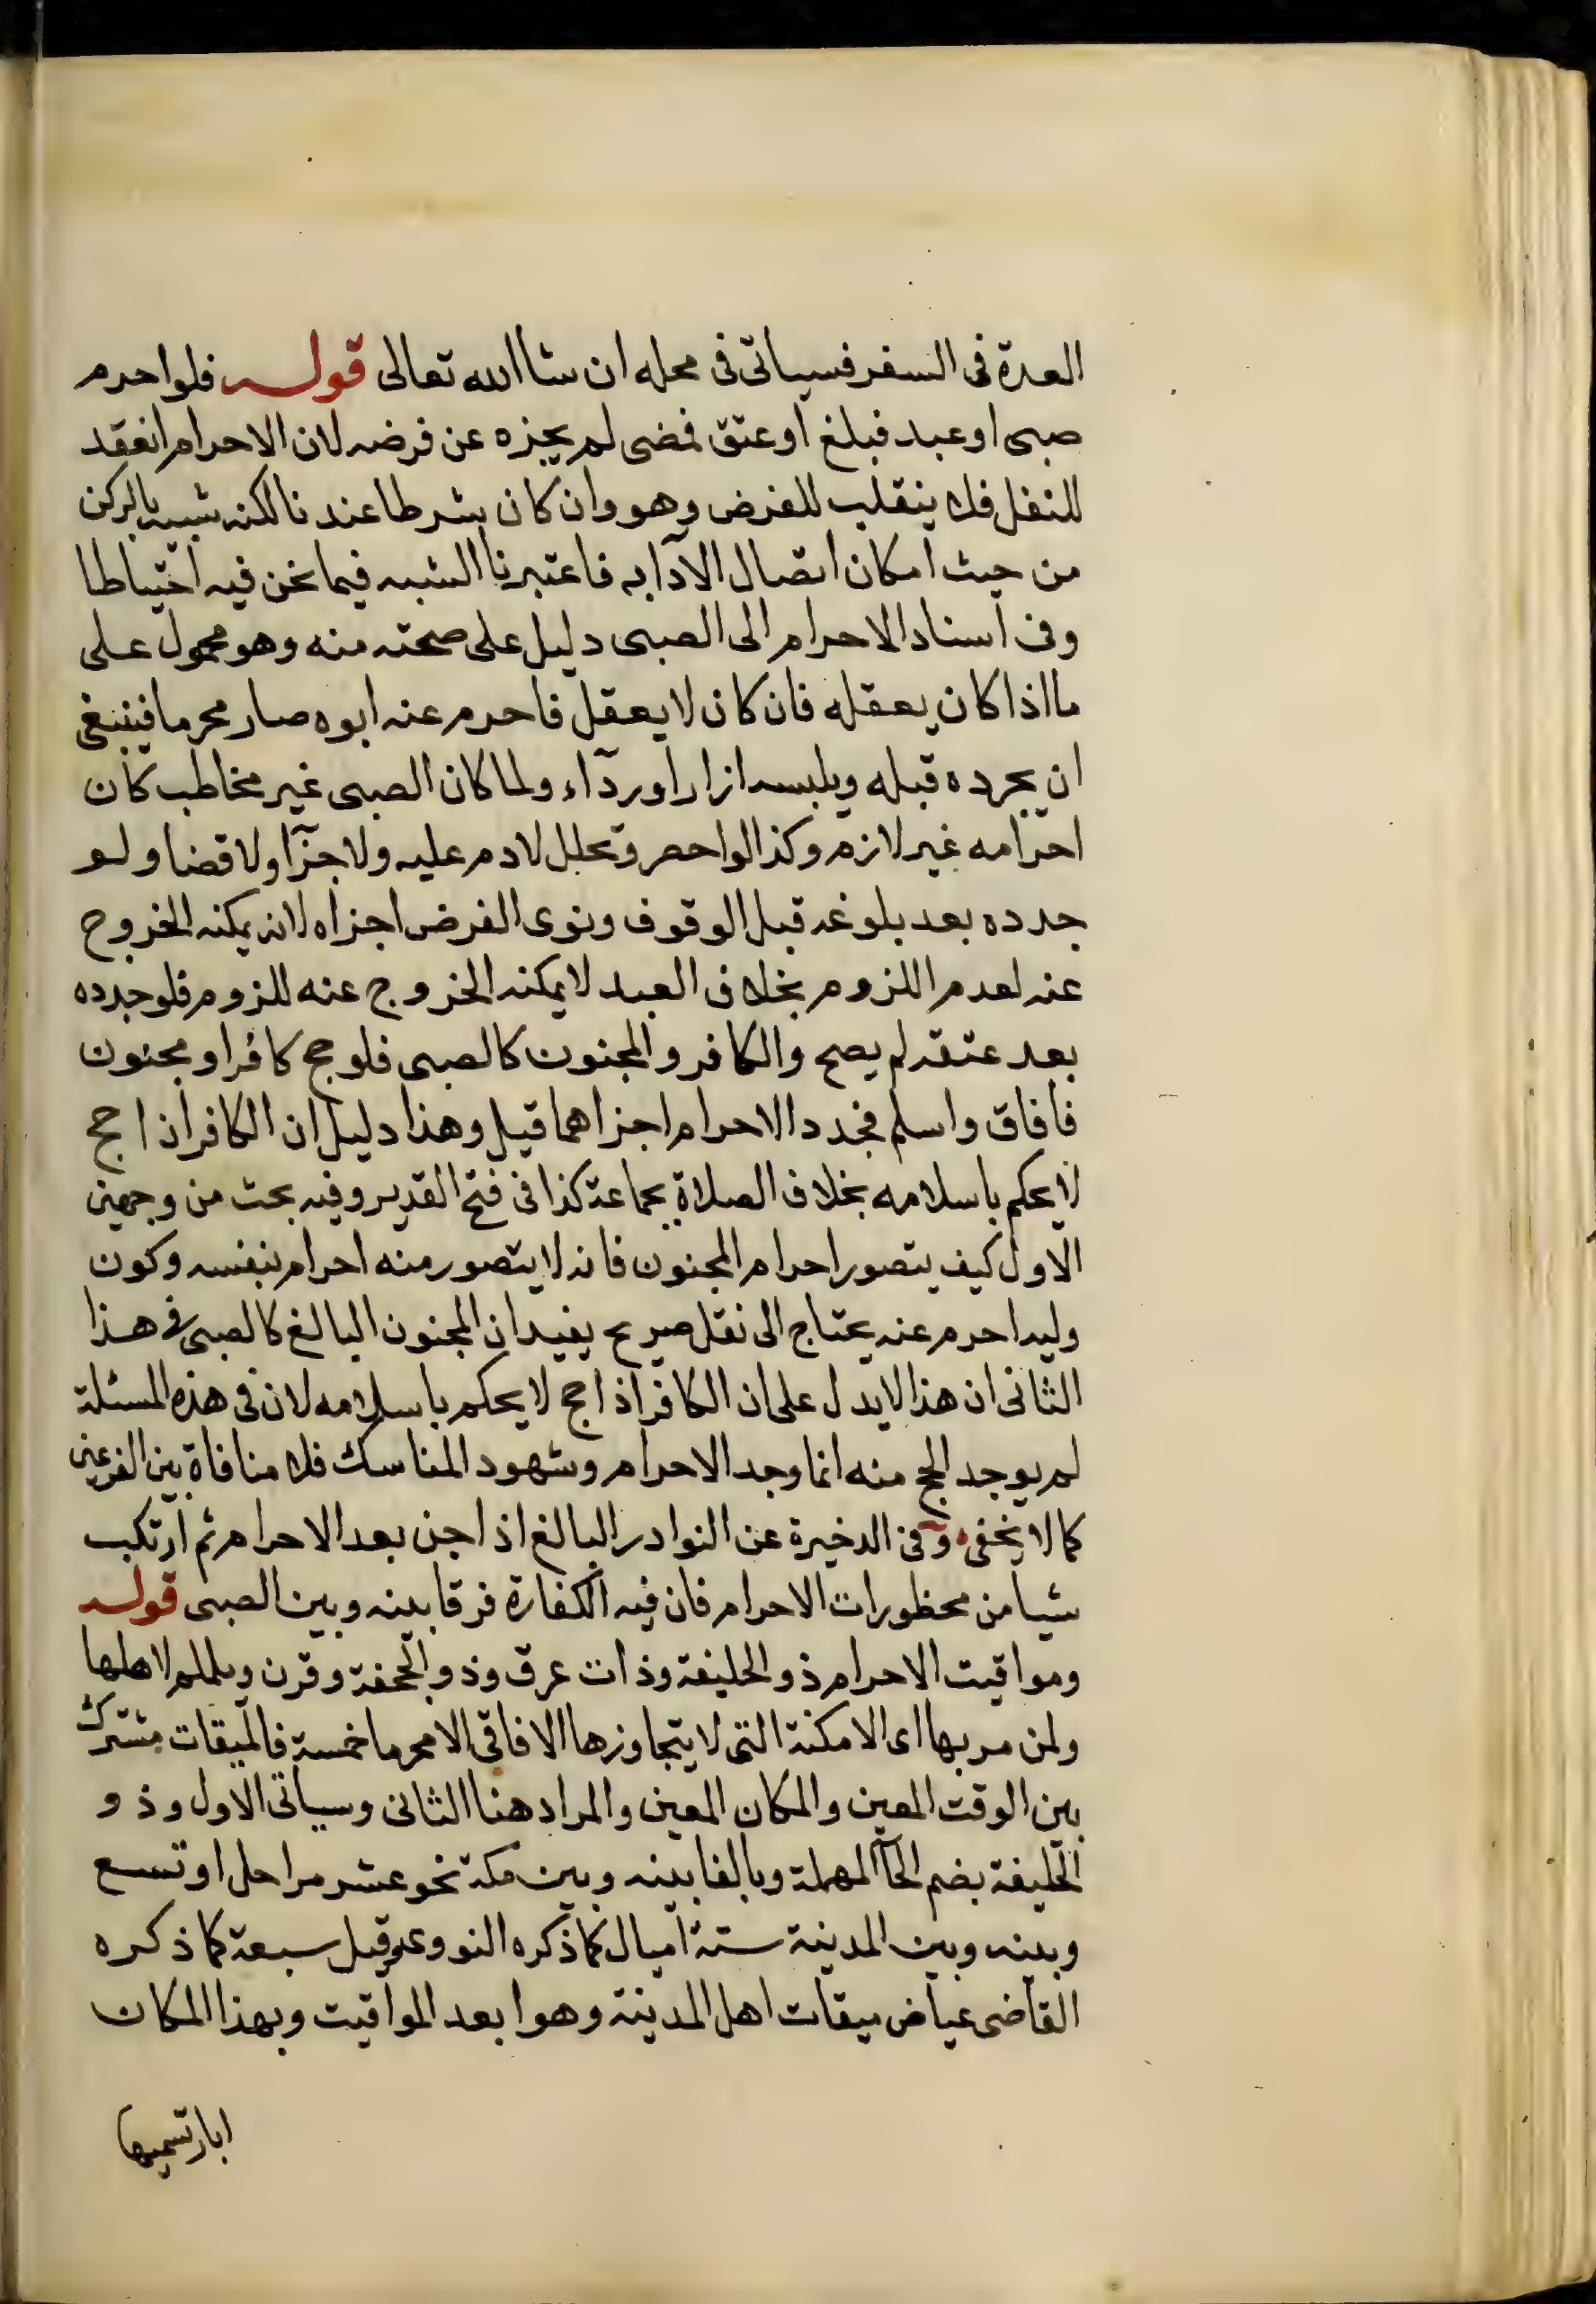 العدة فى السفر فسياتى فى محله ان شا الله تعالى قوله فلو احرم
صبى او عبد فبلغ او عتق فمضى لم يجزه عن فرضه لان الاحرام انعقد
للنفل فلا ينقلب للفرض وهو وان كان شرطا عندنا لكنه شبيه بالركن
من حيث امكان اتصال الآدا به فاعتبرنا الشبه فيما نحن فيه احتياطا
وفى اسناد الاحرام الى الصبى دليل على صحته منه وهو محمول على
ما اذا كان يعقله فان كان لا يعقل فاحرم عنه ابوه صار محرما فينبغى
ان يجرده قبله ويلبسه ازارا وردآء ولما كان الصبى غير مخاطب كان
احرامه غير لازم وكذا لو احصر وتحلل لا دم عليه ولا جزآ ولا قضا ولو
جدده بعد بلوغه قبل الوقوف ونوى الفرض اجزاه لانه يمكنه الخروج
عنه لعدم اللزوم بخلاف العبد لا يمكنه الخروج عنه للزوم فلو جدده
بعد عتقه لم يصح والكافر والمجنون كالصبى فلو حج كافر او مجنون
فافاق واسلم فجدد الاحرام اجزاهما قيل وهذا دليل ان الكافر اذا حج
لا يحكم باسلامه بخلاف الصلاة بجماعة كذا فى فتح القدير وفيه بحث من وجهين
الاول كيف يتصور احرام المجنون فانه لا يتصور منه احرام بنفسه وكون
وليه احرم عنه يحتاج الى نقل صريح يفيد ان المجنون البالغ كالصبى فى هذا
الثانى ان هذا لا يدل على ان الكافر اذا حج لا يحكم باسلامه لان فى هذه المسئلة
لم يوجد الحج منه انما وجد الاحرام وشهود المناسك فلا منافاة بين الفرعين
كما لا يخفى وفى الدخيرة عن النوادر البالغ اذا جن بعد الاحرام ثم ارتكب
شيا من محظورات الاحرام فان فيه الكفارة فرقا بينه وبين الصبى قوله
ومواقيت الاحرام ذو الحليفة وذات عرق وذو الجحفة وقرن ويلملم لاهلها
ولمن مر بها اى الامكنة التى لا يتجاوزها الافاقى الا محرما خمسة فالميقات مشترك
بين الوقت المعين والمكان المعين والمراد هنا الثانى وسياتى الاول وذو
الحليفة بضم الحآ المهملة وبالفا بينه وبين مكة نحو عشر مراحل او تسع
وبينه وبين المدينة ستة اميال كما ذكره النووى وقيل سبعة كما ذكره
القاضى عياض ميقات اهل المدينة وهو ابعد المواقيت وبهذا المكان
ابار تسميها